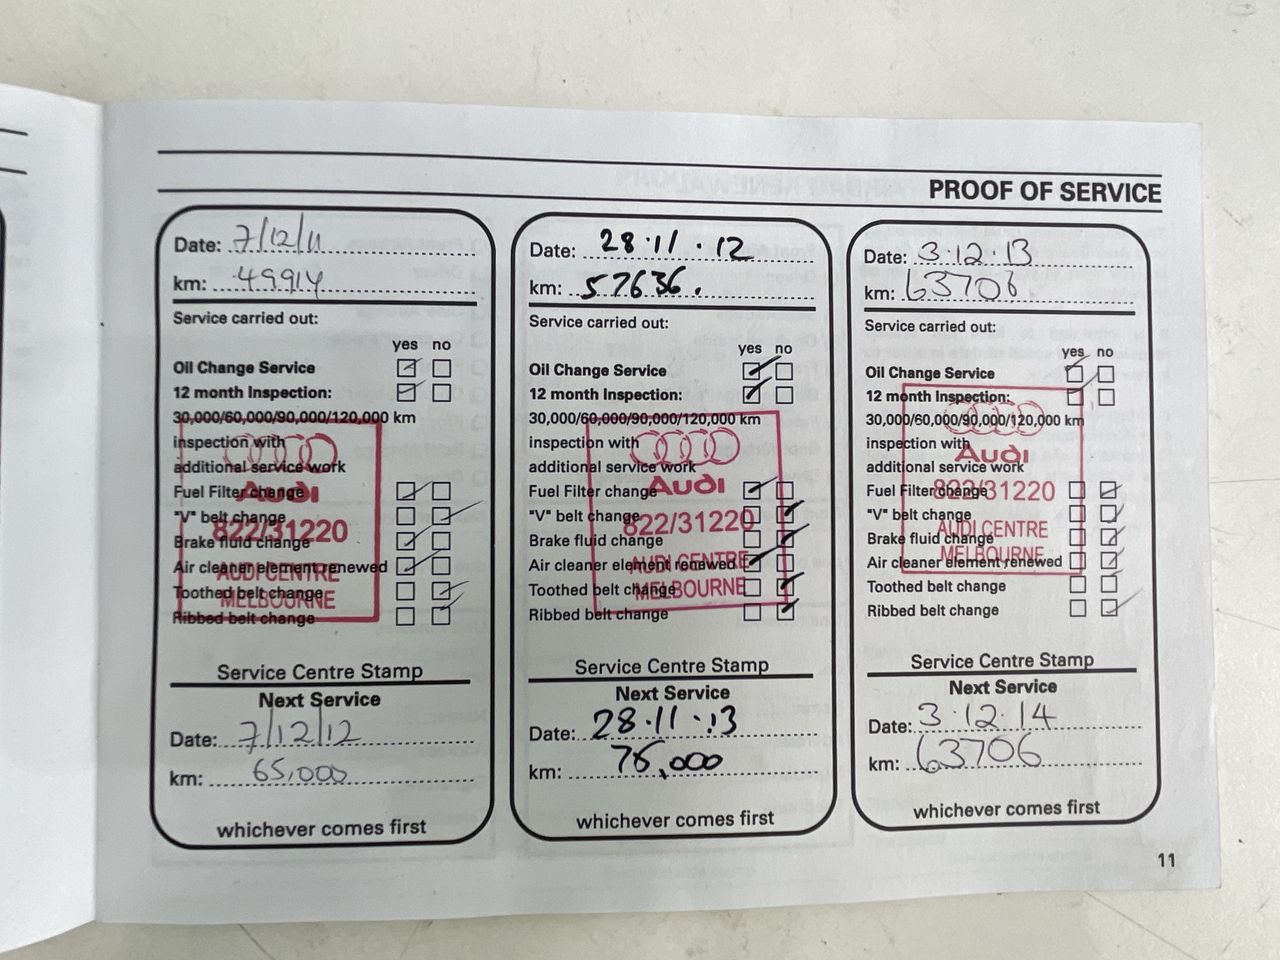 PROOF OF SERVICE
Date: 7/12/11
km: 49914
Service carried out:
yes no
Oil Change Service
12 month Inspection:
30,000/60,000/90,000/120,000 km
inspection with
additional service work
Fuel Filter change
"V" belt change
Brake fluid change
Air cleaner element renewed
Toothed belt change
Ribbed belt change
Audi
822/31220
AUDI CENTRE
MELBOURNE
Service Centre Stamp
Next Service
Date: 7/12/12
km: 65,000
whichever comes first
Date: 28.11.12
km: 57636.
Service carried out:
yes no
Oil Change Service
12 month Inspection:
30,000/60,000/90,000/120,000 km
inspection with
additional service work
Fuel Filter change
"V" belt change
Brake fluid change
Air cleaner element renewed
Toothed belt change
Ribbed belt change
Audi
822/31220
AUDI CENTRE
MELBOURNE
Service Centre Stamp
Next Service
Date: 28.11.13
km: 
whichever comes first
Date: 3.12.13
km: 63706
Service carried out:
yes no
Oil Change Service
12 month Inspection:
30,000/60,000/90,000/120,000 km
inspection with
additional service work
Fuel Filter change
"V" belt change
Brake fluid change
Air cleaner element renewed
Toothed belt change
Ribbed belt change
Audi
822/31220
AUDI CENTRE
MELBOURNE
Service Centre Stamp
Next Service
Date: 3.12.14
km: 63706
whichever comes first
11